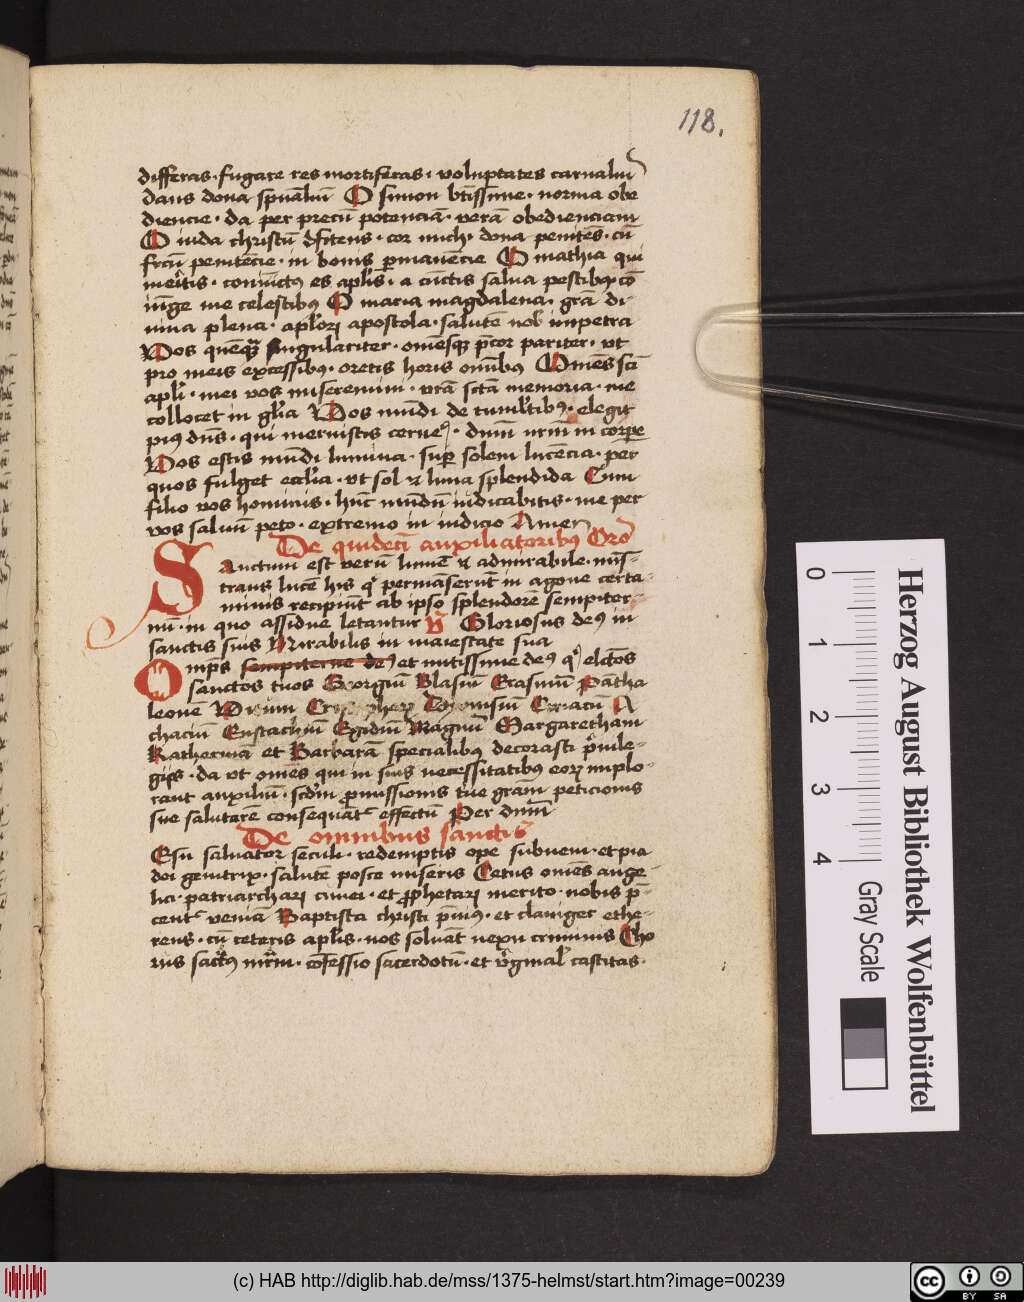 118.
differas · fugare res mortiferas · voluptates carnaliū
dans dona spūaliū O simon btissīme · norma obe
diencie · da per precū potenciā · verā obedienciam
O iuda christū ꝯfitens · cor michi dona penitēs · cū
frcū penitēcie · in bonis ꝑmanēcie O mathia qui
meritis · coniūctꝰ es aplis · a cūctis salua pestibꝰ · cō
iūge me celestibꝰ O maria magdalena · grā di
uina plena · aplorꝝ apostola · salutē nob impetra
Vos quēqꝫ singulariter · omēsqꝫ p̄cor pariter · vt
pro meis excessibꝰ · oretis horis omībꝰ Omēs sci
apli · mei vos miseremini · vrā sctā memoria · me
collocet in gl'ia Vos mūdi de tumltibꝰ · elegit
piꝰ dn̄s · qui meruistis cernere · dūm nrm̄ in corpe
Vos estis mūdi lumina · suꝑ solem lucēcia · per
quos fulget eccl'ia · vt sol et luna splendida Cum
filio vos hominis · hūc mūdū iudicabitis · me per
vos saluū peto · extremo in iudicio Amen
De quidecī auxiliatoribꝰ Oro
Sanctum est verū lumē et admirabile · mīs-
trans lucē his qͥ permāserūt in agone certa-
minis recipiūt ab ipso splendorē sempiter-
nū · in quo assidue letantur V̄ Gloriosus deꝰ in
sanctis suis Mirabilis in maiestate sua
Omp̄s sempiterne deꝰ et mitissime deꝰ qͥ elctōs
sanctos tuos Georgiū Blasiū Erasmū Pātha
leonē Vitum Cristopherꝝ Dyonisiū Ciriacū A
chaciū Eustachiū Egidiū Magnū Margaretham
Katherinā et Barbarā specialibꝰ decorasti p̄uile-
giis · da vt omēs qui in suis necessitatibꝰ eorꝝ implo-
rant auxiliū · scdm promissionis tue grām peticionis
sue salutarē consequāt effectū Per dnm̄
De omnibus sanctis
Esu saluator seculi · redemptis ope subueni · et pia
dei genitrix · salutē posce miseris Cetus omēs ange
lici · patriarcharꝝ cunei · et prophetarꝝ merito · nobis p̄-
cent veniā Baptista christi p̄uiꝰ · et clauiger ethe-
reus · cū ceteris aplis · nos soluāt nexu criminis Cho
rus sacrꝰ mrm̄ · cōfessio sacerdotū · et virginal castitas ·
0 1 2 3 4
Gray Scale
Herzog August Bibliothek Wolfenbüttel
(c) HAB http://diglib.hab.de/mss/1375-helmst/start.htm?image=00239
cc BY SA